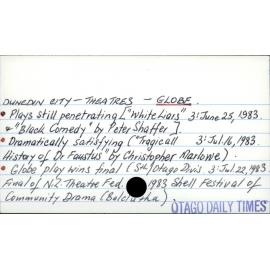 DUNEDIN CITY - THEATRES - GLOBE.
• Plays still penetrating ["White Liars" 3: June 25, 1983.
& "Black Comedy" by Peter Shaffer].
• Dramatically satisfying ("Tragicall 3: Jul. 16, 1983.
History of Dr Faustus" by Christopher Marlowe).
• Globe play wins final (Sth/Otago Divis 3: Jul 22, 1983.
Final of N.Z. Theatre Fed. 1983 Shell Festival of
Community Drama (Balclutha).
OTAGO DAILY TIMES